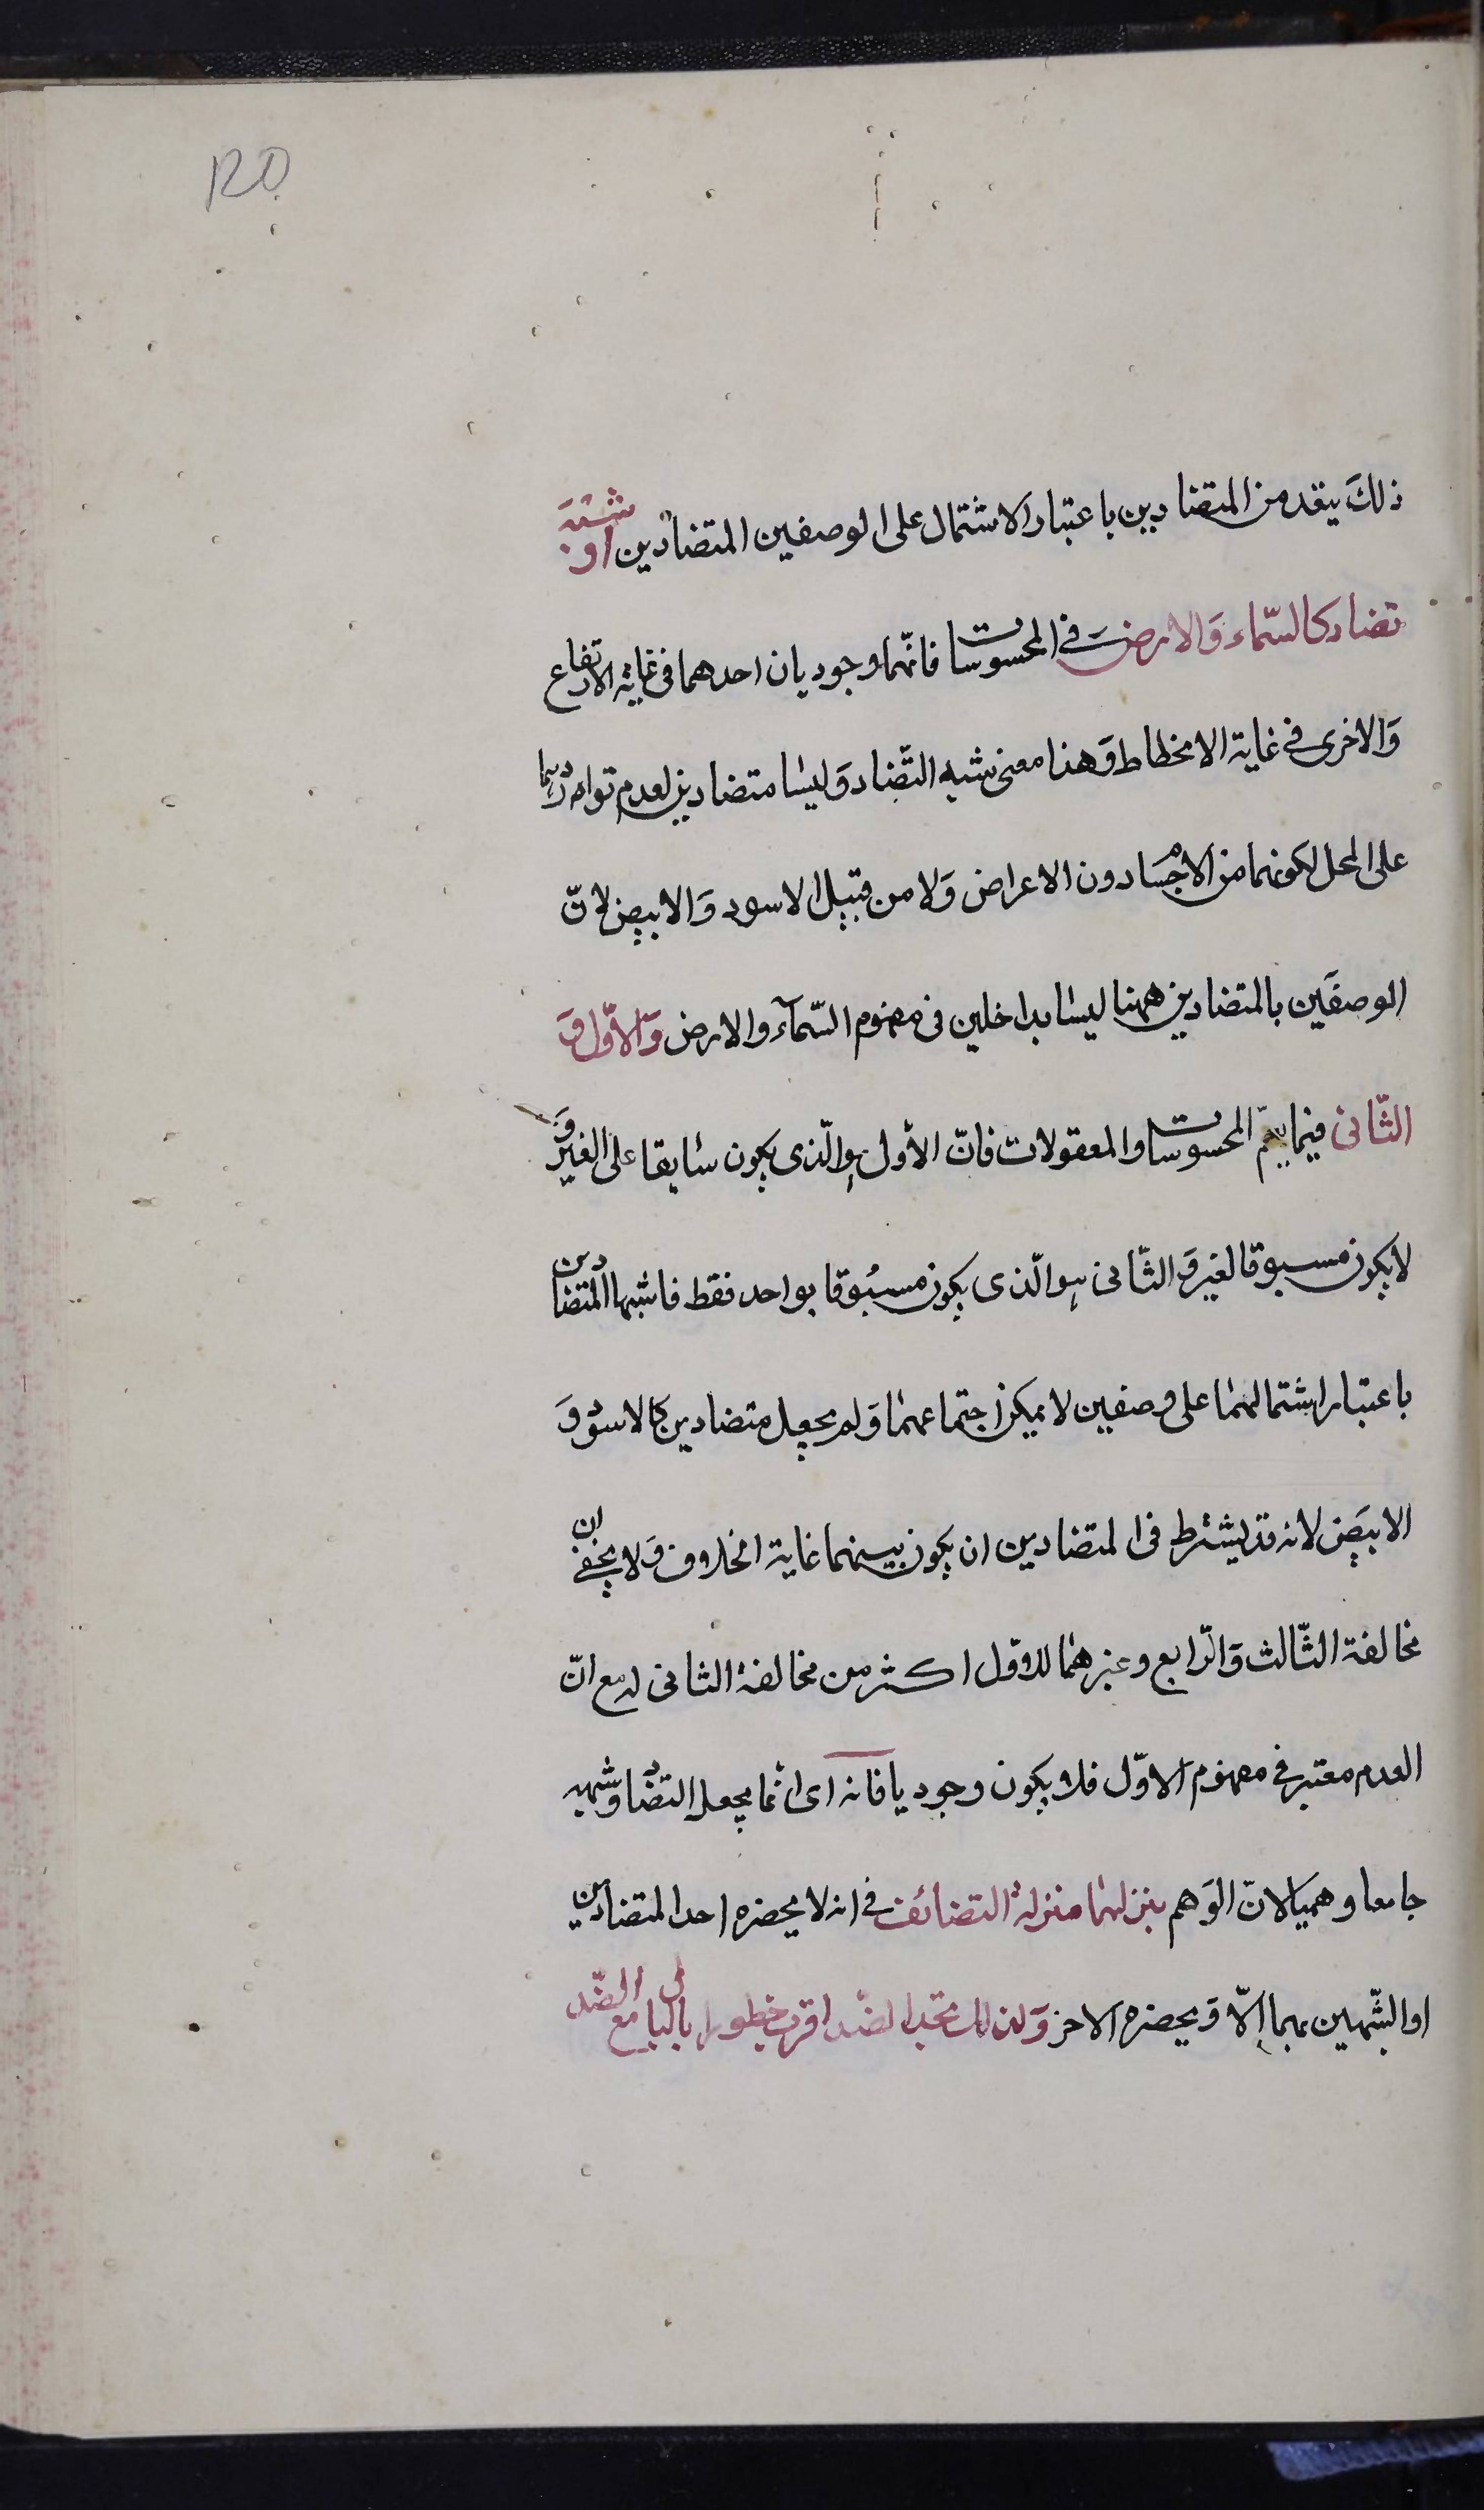 120
ذلكَ يعد من المتضادين باعتبار الاشتمال على الوصفين المتضادين او شبهَ
تضاد كالسّماء وَالارض في المحسوسات فانّهما وجوديان احدهما فى غاية الارتفاع
وَالاخرى في غاية الانحطاط وَهذا معنى شبه التّضاد وَليسا متضادين لعدم تواردهما
على المحل لكونهما من الاجسام دون الاعراض وَلا من قبيل الاسود وَالابيض لانّ
الوصفَين بالمتضادين ههنا ليسا بداخلين فى مفهوم السّمآء والارض وَالاوّل وَ
الثّانى فيما يعمّ المحسوسات والمعقولات فانّ الأول هو الّذى يكون سابقا على الغير وَ
لا يكون مسبوقا لغير وَالثّانى هو الّذى يكون مسبُوقا بواحد فقط فاشبها المتضادين
باعتبار اشتمالهما على وصفين لا يمكن اجتماعهما وَلم يجعل متضادين كالاسود وَ
الابيَض لانه قد يشترط فى المتضادين ان يكون بينهما غاية الخلاف وَلا يخفى ان
مخالفة الثّالث وَالرّابع وغيرهما للاوّل اكثر من مخالفة الثانى له مع انّ
العدم معتبر في مفهوم الاوّل فلا يكون وجوديا فانه اى انما يجعل التضاد وشبهه
جامعا وهميا لانّ الوَهم ينزلهما منزلة التضائف في انه لا يحضره احد المتضادين
او الشّبهين بهما الّا وَيحضره الاخر وَلذلك تجد الضّد اقرب خطورا بالبال مع الضّد